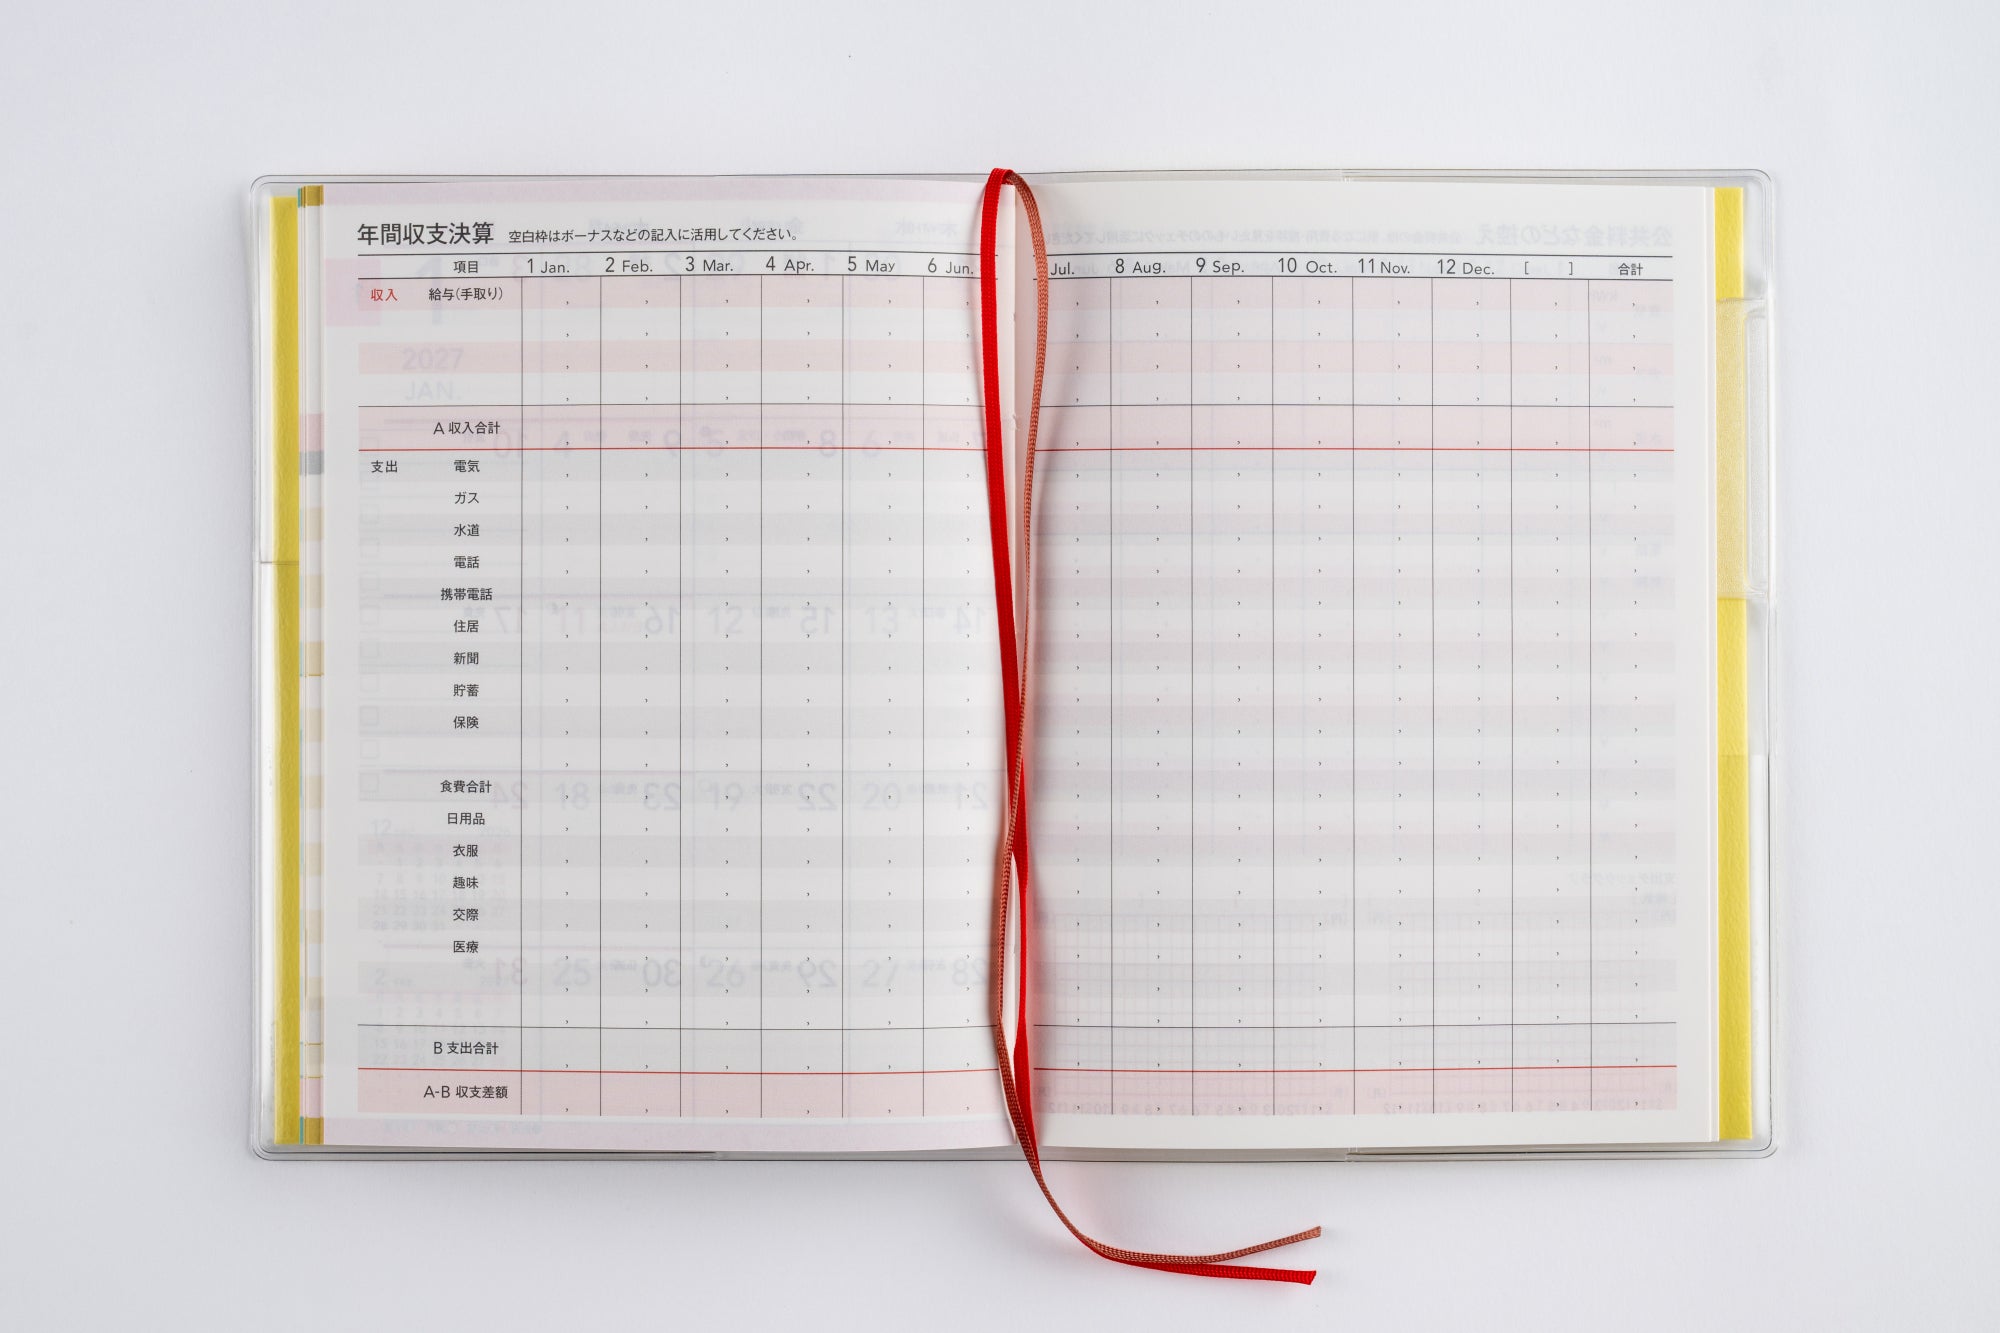 年間収支決算 空白枠はボーナスなどの記入に活用してください。
項目 1 Jan. 2 Feb. 3 Mar. 4 Apr. 5 May 6 Jun. Jul. 8 Aug. 9 Sep. 10 Oct. 11 Nov. 12 Dec. [ ] 合計
収入 給与(手取り)
A 収入合計
支出 電気
ガス
水道
電話
携帯電話
住居
新聞
貯蓄
保険
食費合計
日用品
衣服
趣味
交際
医療
B 支出合計
A-B 収支差額
2027
JAN.